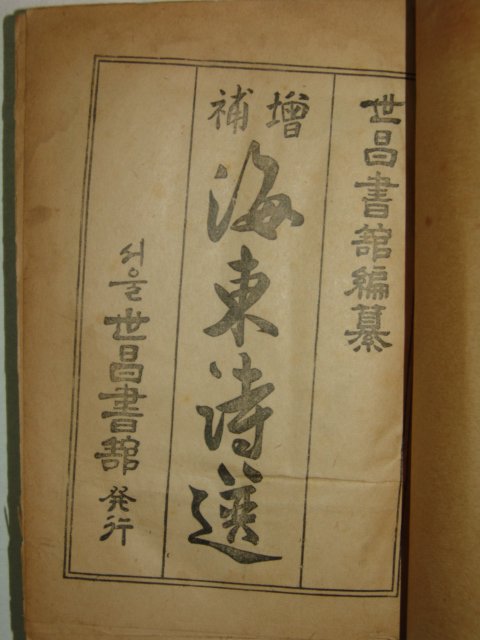 世昌書舘編纂
增補
海東詩選
서울 世昌書舘 発行